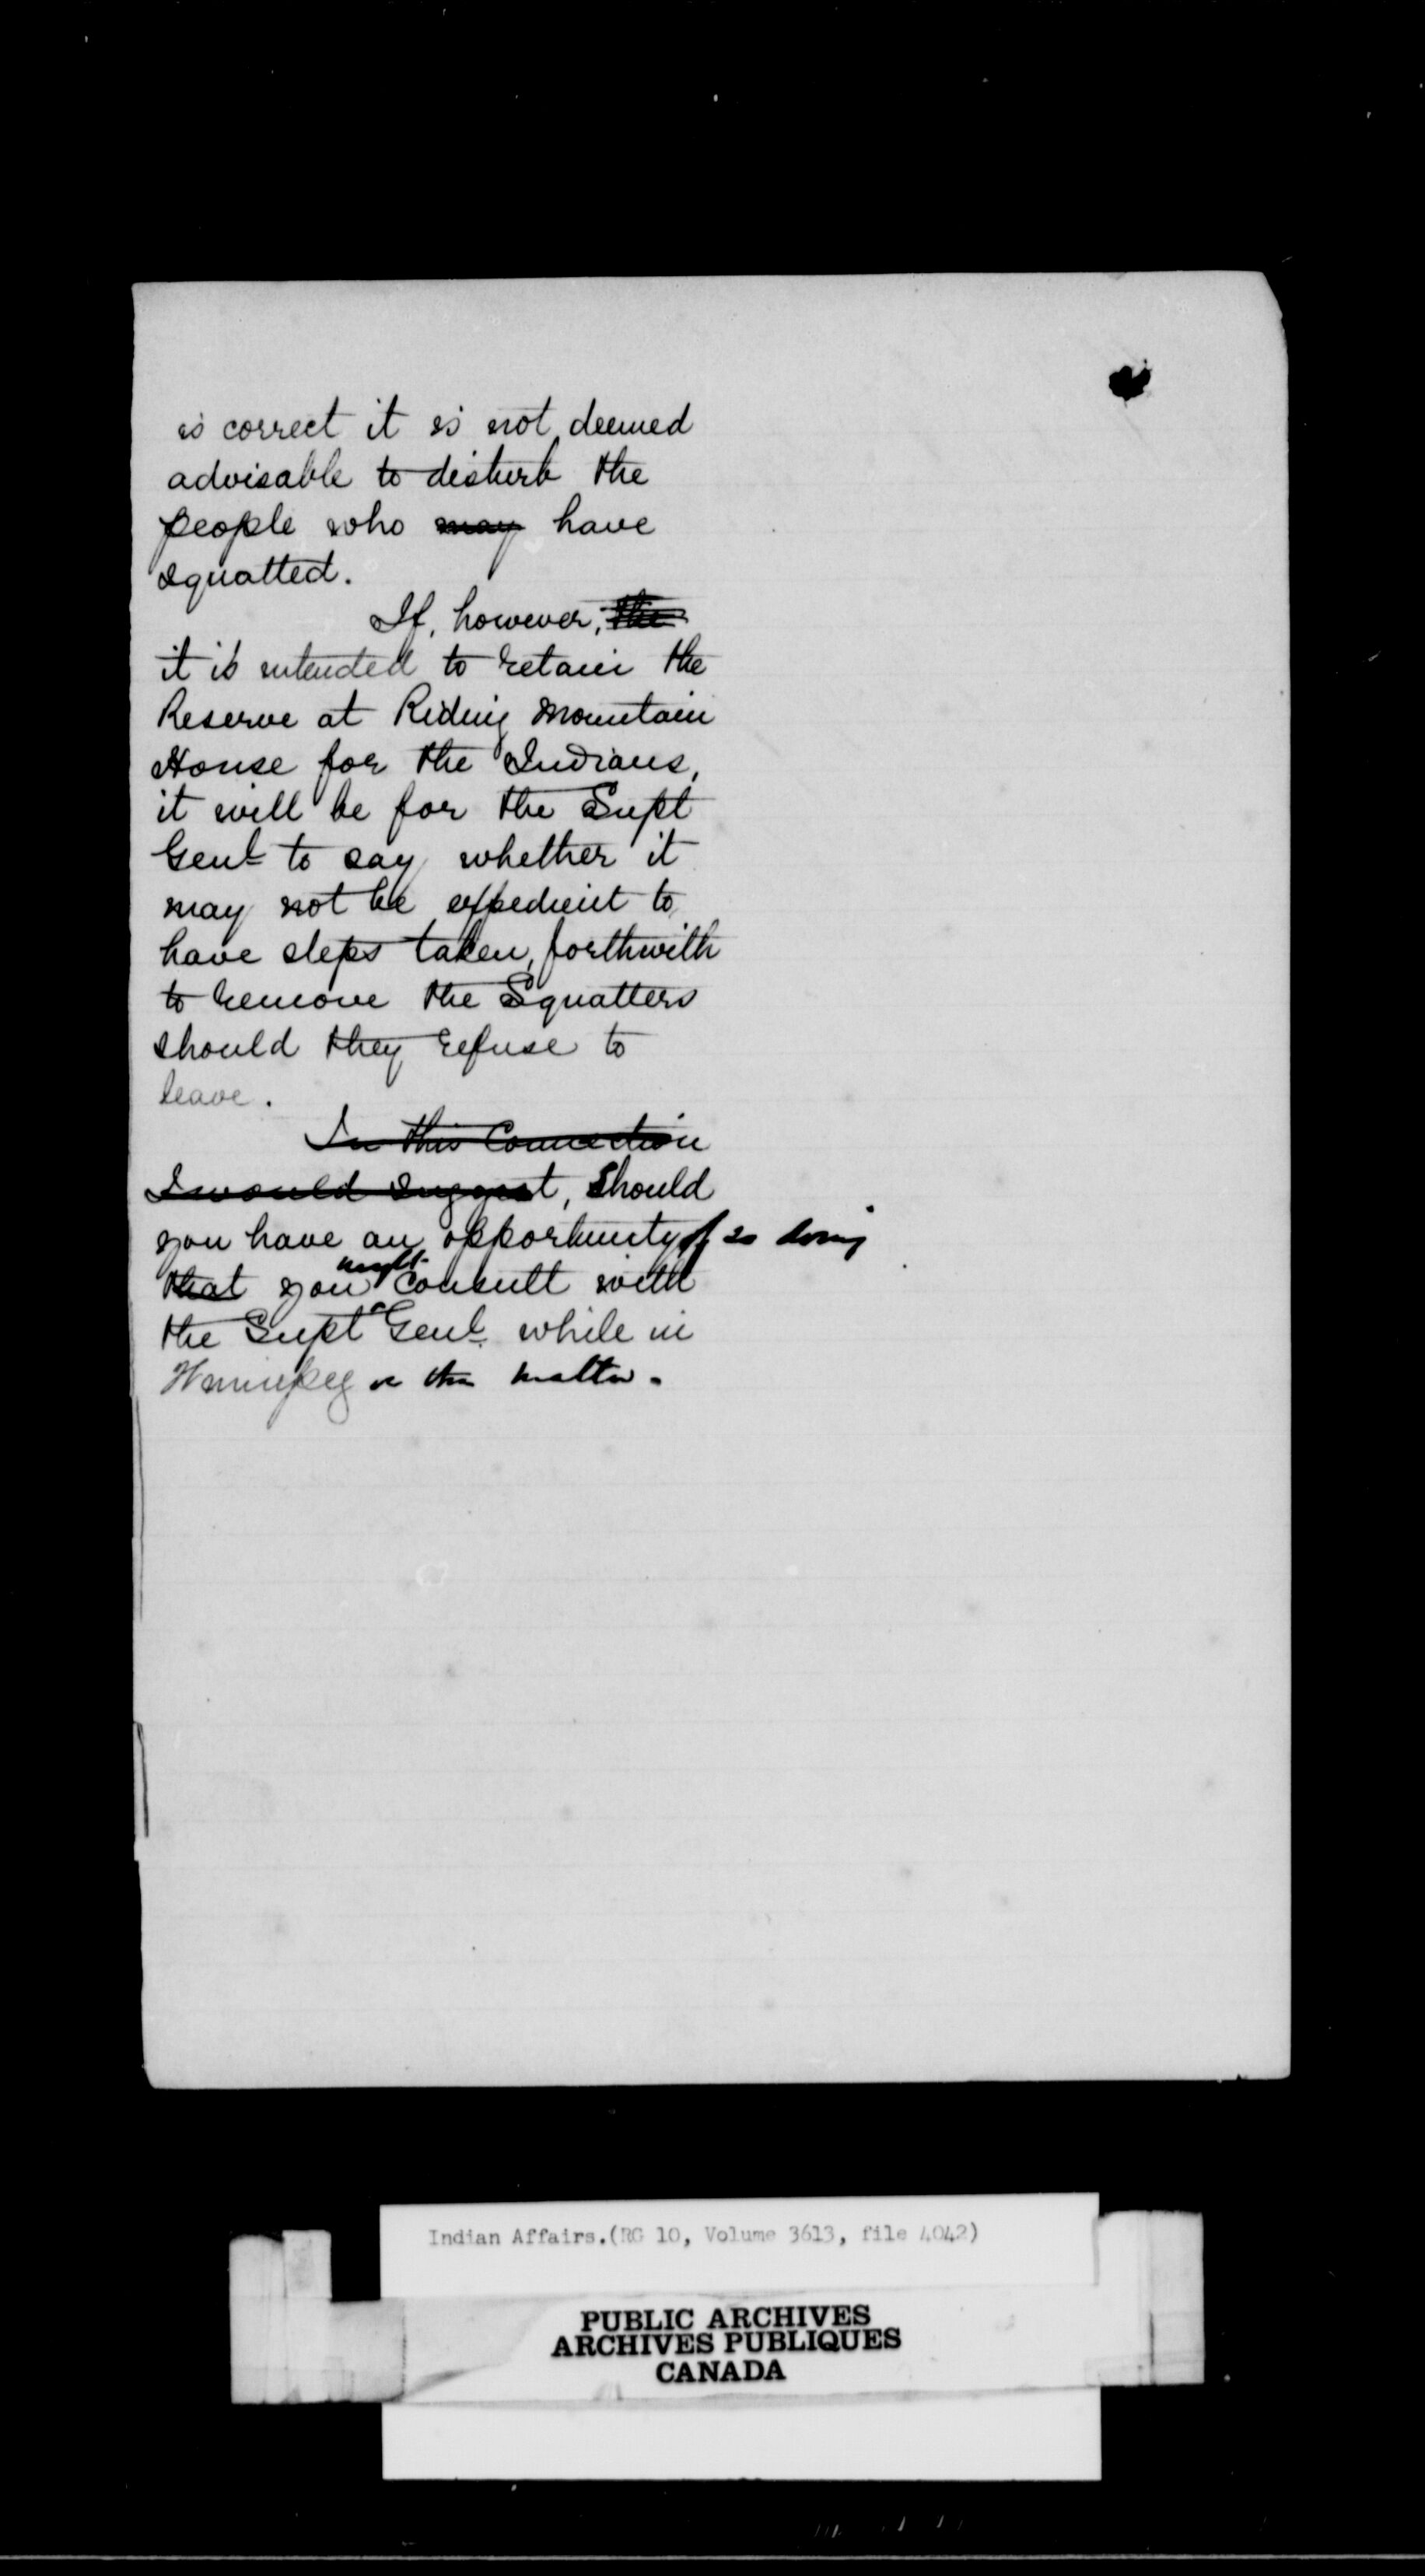 is correct it is not deemed
advisable to disturb the
people who may have
squatted.
If, however, the
it is intended to retain the
Reserve at Riding Mountain
House for the Indians,
it will be for the Supt
Genl to say whether it
may not be expedient to
have steps taken, forthwith
to remove the Squatters
should they refuse to
leave.
In this Connection
I would suggest, Should
you have an opportunity of so doing
that you might consult with
the Supt Genl while in
Winnipeg on the matter.
Indian Affairs.(RG 10, Volume 3613, file 4042)
PUBLIC ARCHIVES
ARCHIVES PUBLIQUES
CANADA